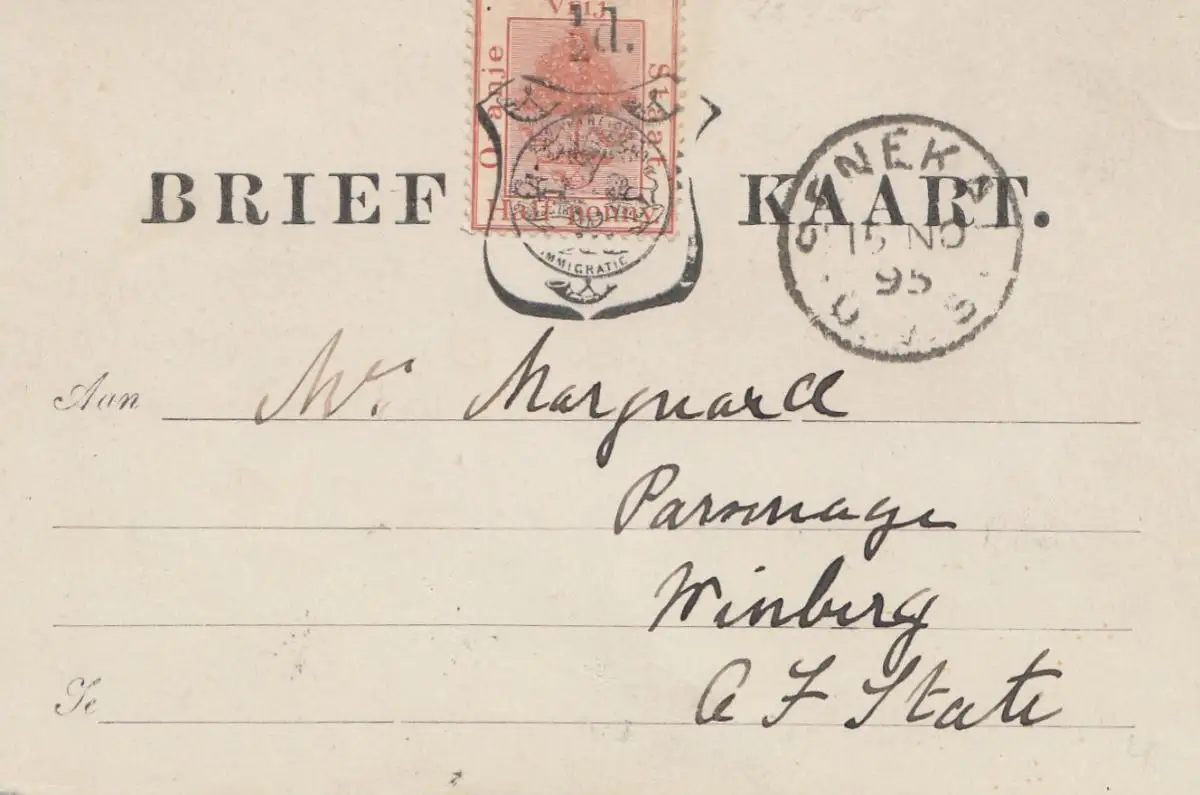 VRIJ
½d.
Oranje
Staat
Half penny
IMMIGRATIE
BRIEF KAART.
SENEKAL
15 NO
95
O.V.S.
Aan Mrs. Marquard
Parsonage
Winburg
O F State
Te